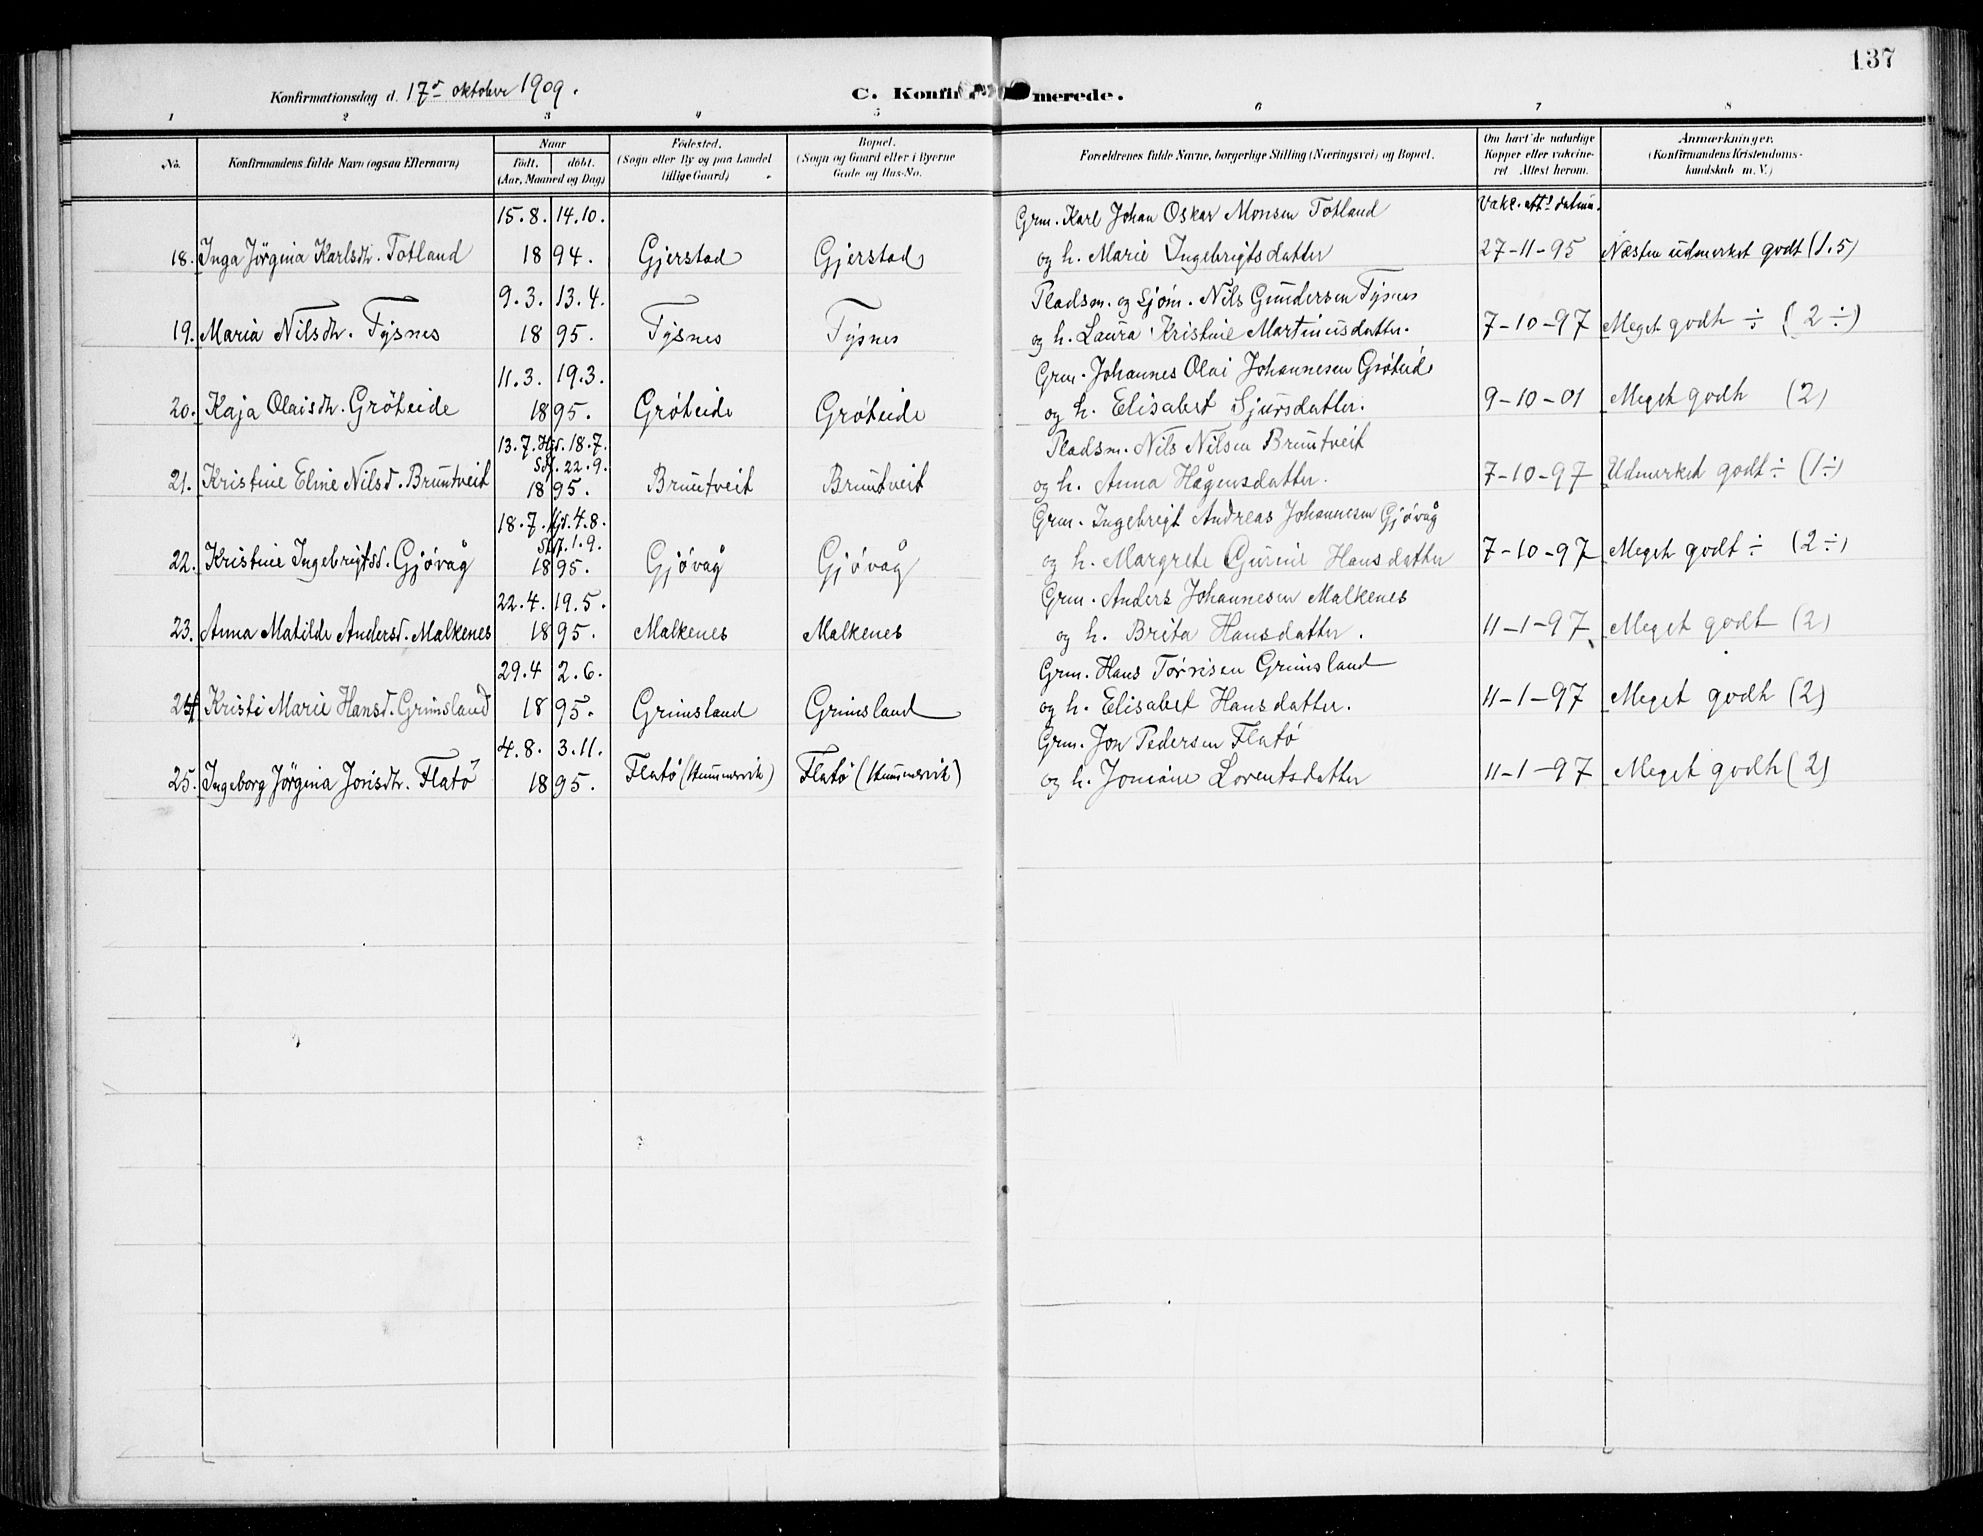 137
Konfirmationsdag d. 17de oktober 1909.
C. Konfirmerede.
1 2 3 4 5 6 7 8
No. Konfirmandens fulde Navn (ogsaa Efternavn) Naar født. døbt. (Aar, Maaned og Dag) Fødested. (Sogn eller By og paa Landet tillige Gaard) Bopæl. (Sogn og Gaard eller i Byerne Gade og Hus-No. Forældrenes fulde Navne, borgerlige Stilling (Næringsvei) og Bopæl. Om havt de naturlige Kopper eller vakcineret. Attest herom. Anmærkninger. (Konfirmandens Kristendomskundskab m. V.)
Vakc. att. datum.
15.8. 14.10. Grm. Karl Johan Oskar Monsen Totland
18. Inga Jørgina Karlsdtr. Totland 1894. Gjerstad Gjerstad og h. Marie Ingebrigtsdatter 27-11-95 Næsten udmerket godt (1.5)
9.3. 13.4. Pladsm. og Sjøm. Nils Gundersen Tysnes
19. Maria Nilsdtr. Tysnes 1895. Tysnes Tysnes og h. Laura Kristine Martinusdatter. 7-10-97 Meget godt ÷ (2÷)
11.3. 19.3. Grm. Johannes Olai Johannesen Grøteide
20. Kaja Olaisdtr. Grøteide 1895. Grøteide Grøteide og h. Elisabet Sjursdatter. 9-10-01 Meget godt (2)
13.7. Hjd. 18.7. Pladsm. Nils Nilsen Bruntveit
Stf. 22.9.
21. Kristine Eline Nilsd. Bruntveit 1895. Bruntveit Bruntveit og h. Anna Hågensdatter. 7-10-97 Udmerket godt ÷ (1÷)
18.7. Hjd. 4.8. Grm. Ingebrigt Andreas Johannesen Gjøvåg
Stf. 1.9.
22. Kristine Ingebrigtsd. Gjøvåg 1895. Gjøvåg Gjøvåg og h. Margrete Gurine Hansdatter 7-10-97 Meget godt ÷ (2÷)
22.4. 19.5. Grm. Anders Johannesen Malkenes
23. Anna Matilde Andersd. Malkenes 1895. Malkenes Malkenes og h. Brita Hansdatter. 11-1-97 Meget godt (2)
29.4 2.6. Grm. Hans Tørrisen Grimsland
24 Kristi Marie Hansd. Grimsland 1895. Grimsland Grimsland og h. Elisabet Hansdatter. 11-1-97 Meget godt (2)
4.8. 3.11. Grm. Jon Pedersen Flatø
25. Ingeborg Jørgina Jonsdtr. Flatø 1895. Flatø (Hummervik) Flatø (Hummervik) og h. Joniane Lorentsdatter 11-1-97 Meget godt (2)